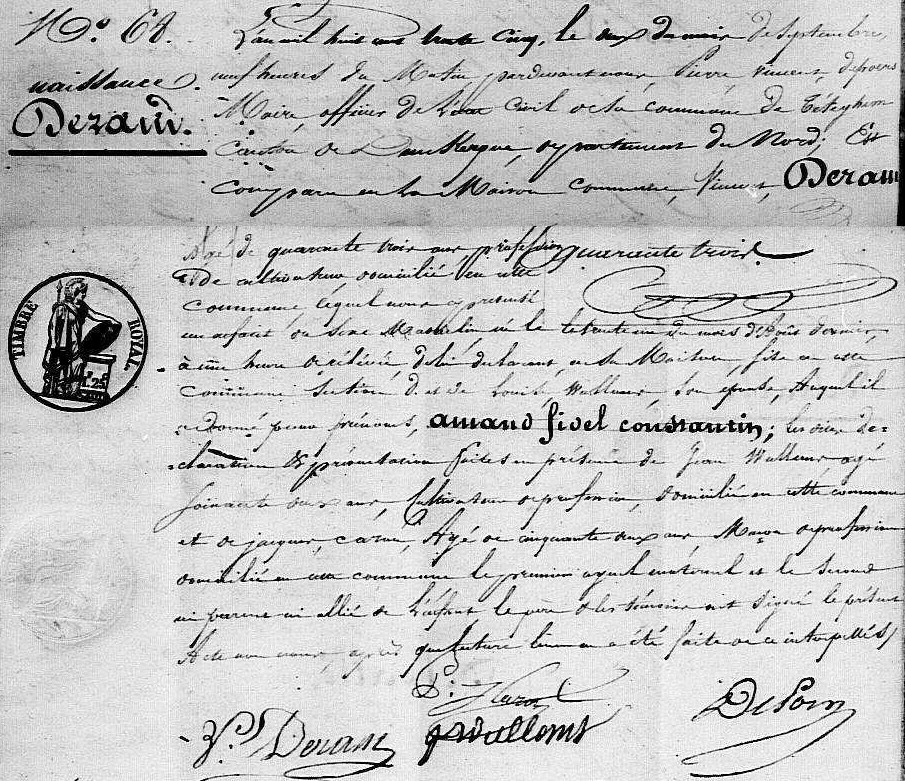 N.° 68.
naissance
Deram.
L'an mil huit cent trente cinq, le deux du mois de Septembre,
neuf heures du Matin, pardevant nous, Pierre Vincent,
Maire, officier de l'état Civil de la commune de Téteghem
Canton de Dunkerque, département du Nord; Est
comparu en la Maison commune, Vincent, Deram
Agé de quarante trois ans profession quarante trois
de cultivateur domicilié en cette
commune, lequel nous a présenté
un enfant du sexe Masculin né le trente un du mois d'Août dernier,
à une heure de rélévée, de lui déclarant, en sa Maison, sise en cette
commune Section D. et de Wallems, Son épouse, Auquel il
a donné pour prénoms, amand fidel constantin; les dites dé=
=claration & présentation faites en présence de Jean Wallems agé
soixante deux ans, Cultivateur de profession, domicilié en cette commune
et de jacques, carou, Agé de cinquante deux ans Maçon de profession
domicilié en cette commune le premier ayeul maternel et le second
ni parent ni allié de l'enfant, le père & les témoins ont signé le présent
Acte avec nous, après que lecture leur en a été faite de ce interpellés/
TIMBRE ROYAL
25
V. Deram
J Wallems